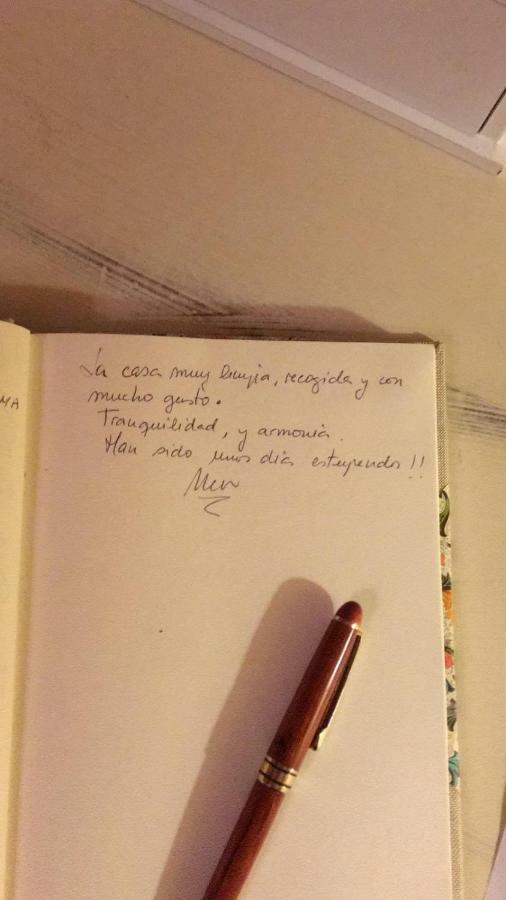 MA
La casa muy limpia, recogida y con
mucho gusto.
Tranquilidad, y armonia.
Han sido unos dia estupendos!!